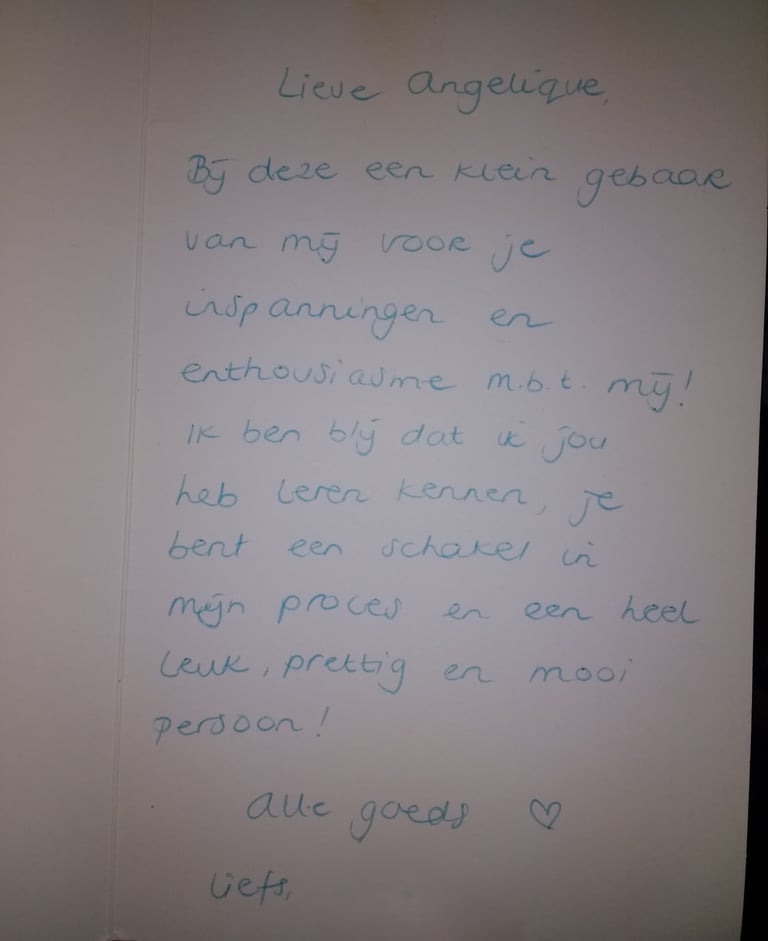 Lieve Angelique,
Bij deze een klein gebaar
van mij voor je
inspanningen en
enthousiasme m.b.t. mij!
Ik ben blij dat ik jou
heb leren kennen, je
bent een schakel in
mijn proces en een heel
leuk, prettig en mooi
persoon!
Alle goeds ♡
Liefs,